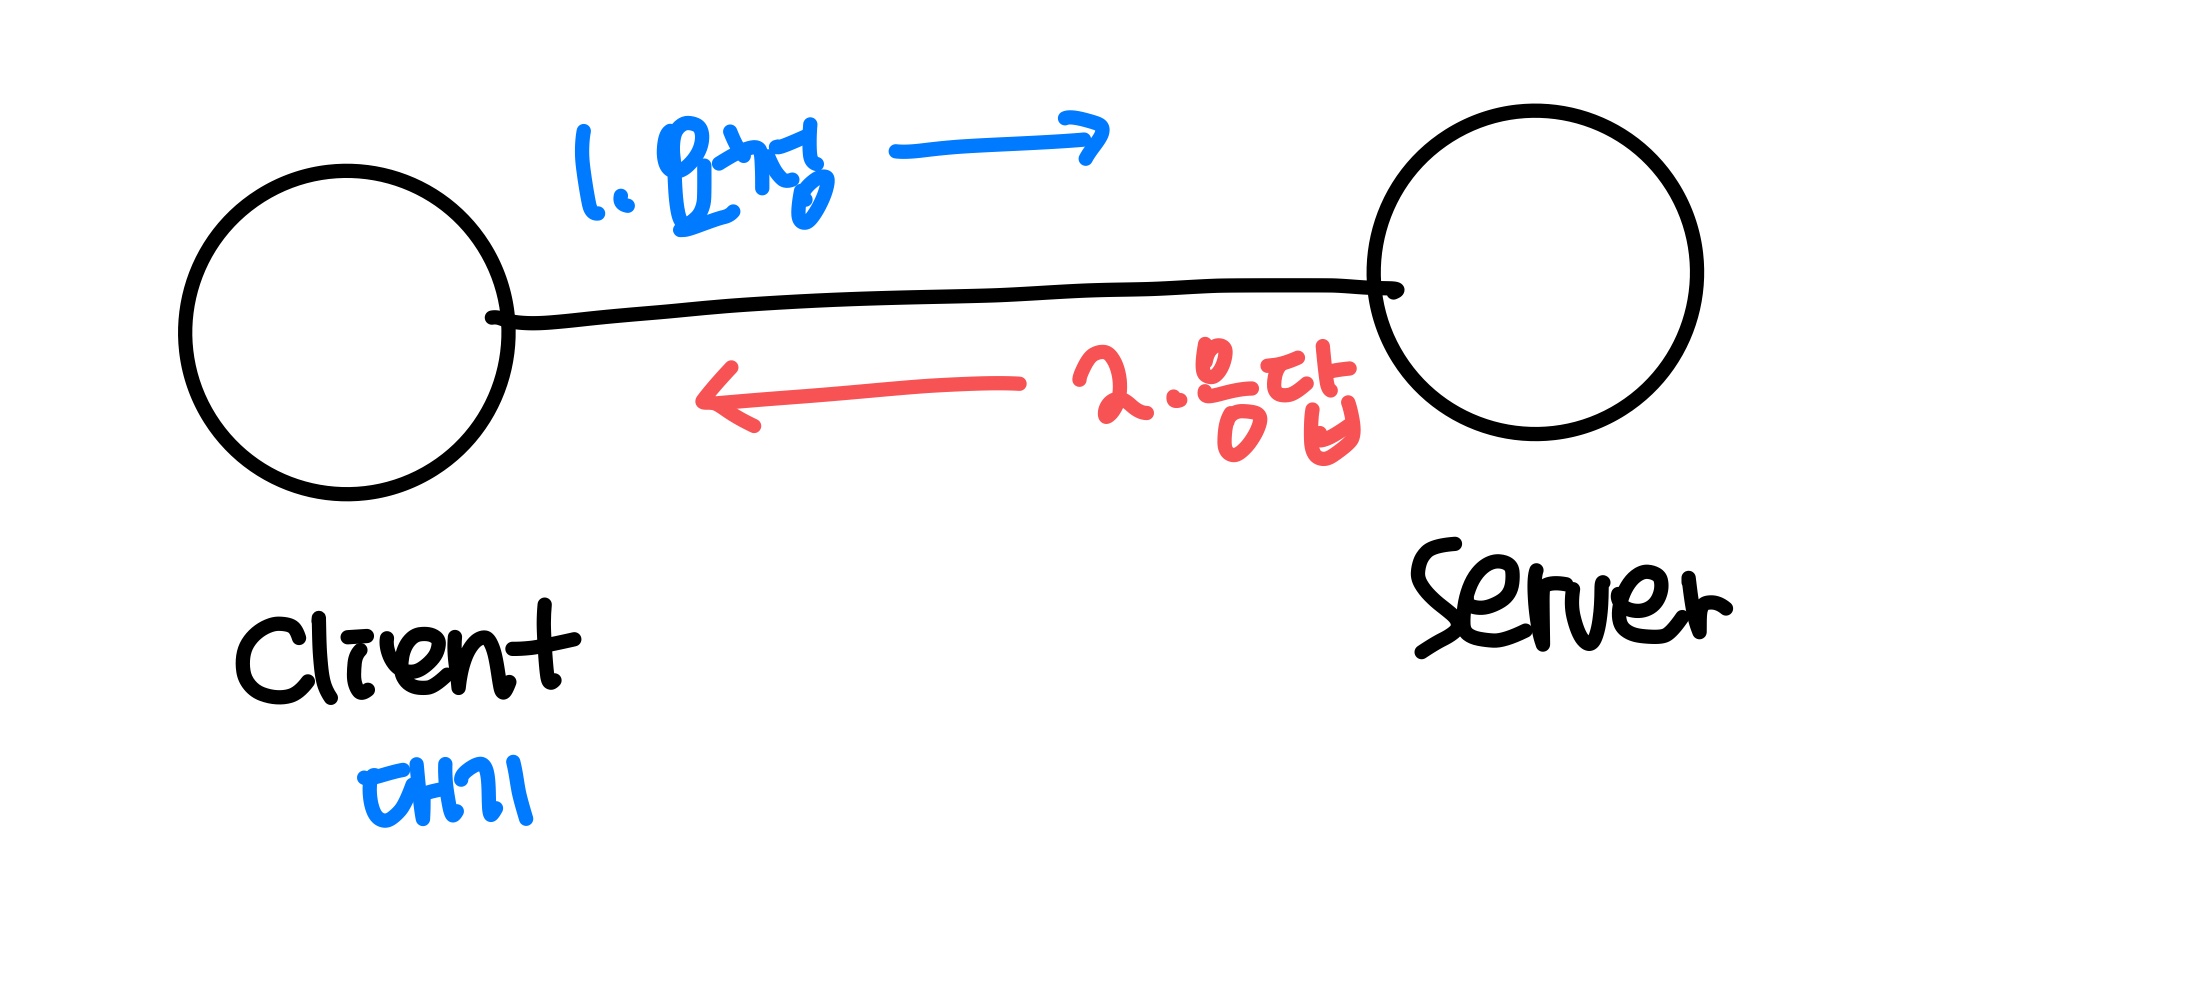 1. 요청
2. 응답
Client
Server
대기